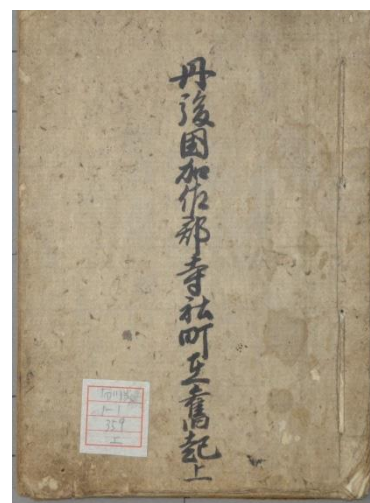 丹後国加佐郡寺社町在旧起上
1-1
359
上